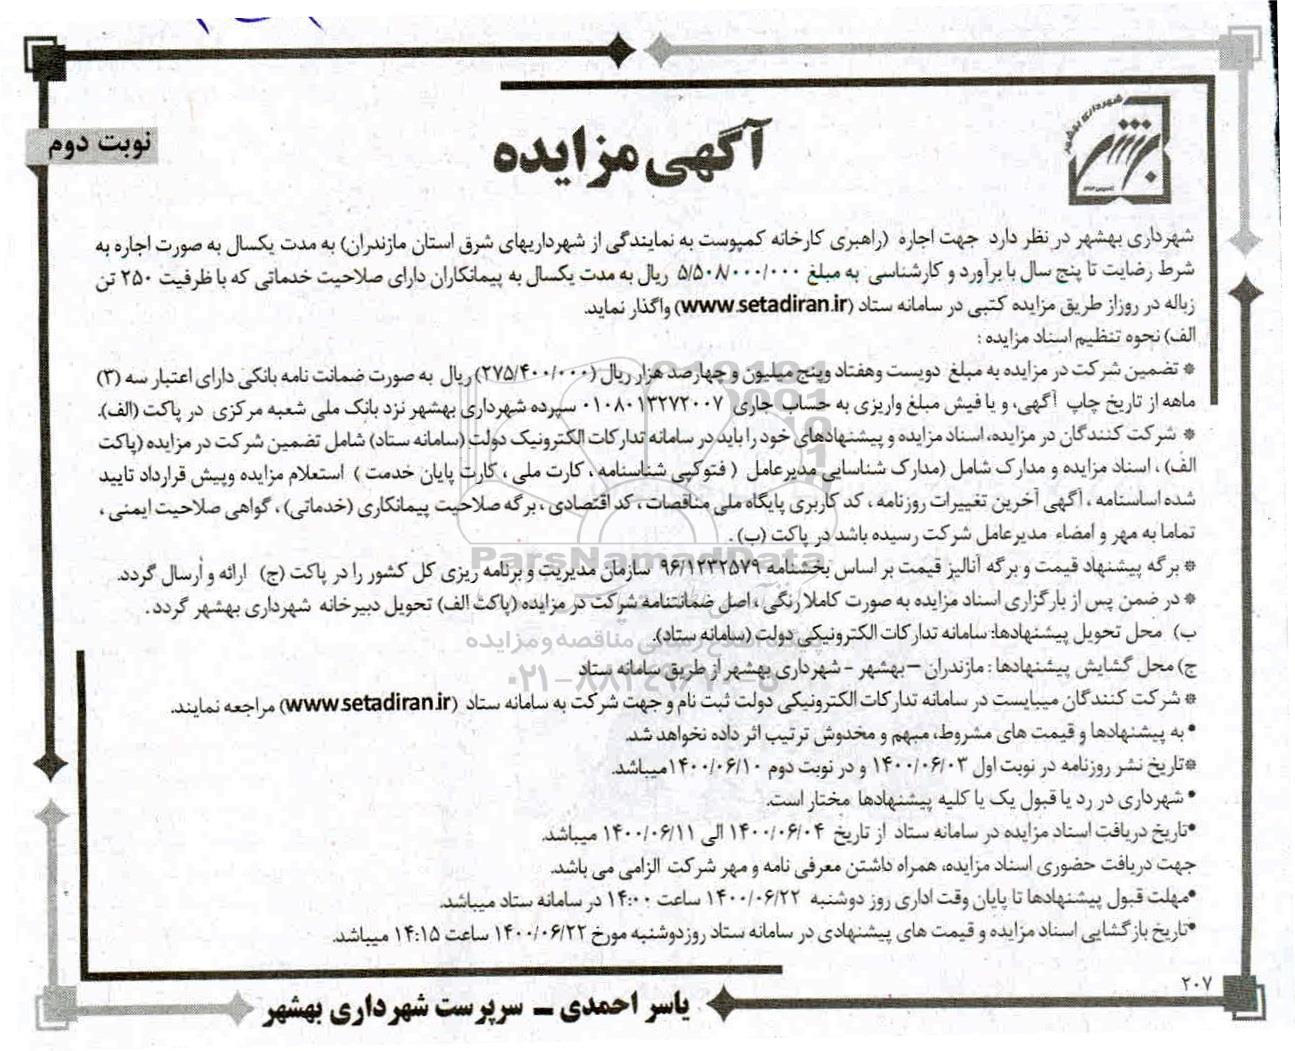 نوبت دوم
شهرداری بهشهر
بهشهر
آگهی مزایده
شهرداری بهشهر در نظر دارد جهت اجاره (راهبری کارخانه کمپوست به نمایندگی از شهرداریهای شرق استان مازندران) به مدت یکسال به صورت اجاره به
شرط رضایت تا پنج سال با برآورد و کارشناسی به مبلغ ۵/۵۰۸/۰۰۰/۰۰۰ ریال به مدت یکسال به پیمانکاران دارای صلاحیت خدماتی که با ظرفیت ۲۵۰ تن
زباله در روزاز طریق مزایده کتبی در سامانه ستاد (www.setadiran.ir) واگذار نماید.
الف) نحوه تنظیم اسناد مزایده :
* تضمین شرکت در مزایده به مبلغ دویست وهفتاد وپنج میلیون و چهارصد هزار ریال (۲۷۵/۴۰۰/۰۰۰) ریال به صورت ضمانت نامه بانکی دارای اعتبار سه (۳)
ماهه از تاریخ چاپ آگهی، و یا فیش مبلغ واریزی به حساب جاری ۰۱۰۸۰۱۳۲۷۲۰۰۷ سپرده شهرداری بهشهر نزد بانک ملی شعبه مرکزی در پاکت (الف).
* شرکت کنندگان در مزایده، اسناد مزایده و پیشنهادهای خود را باید در سامانه تدارکات الکترونیک دولت (سامانه ستاد) شامل تضمین شرکت در مزایده (پاکت
الف) ، اسناد مزایده و مدارک شامل (مدارک شناسایی مدیرعامل ( فتوکپی شناسنامه ، کارت ملی ، کارت پایان خدمت ) استعلام مزایده وپیش قرارداد تایید
شده اساسنامه ، آگهی آخرین تغییرات روزنامه ، کد کاربری پایگاه ملی مناقصات ، کد اقتصادی ، برگه صلاحیت پیمانکاری (خدماتی) ، گواهی صلاحیت ایمنی ،
تماما به مهر و امضاء مدیرعامل شرکت رسیده باشد در پاکت (ب) .
* برگه پیشنهاد قیمت و برگه آنالیز قیمت بر اساس بخشنامه ۹۶/۱۲۳۲۵۷۹ سازمان مدیریت و برنامه ریزی کل کشور را در پاکت (ج) ارائه و ارسال گردد.
* در ضمن پس از بارگزاری اسناد مزایده به صورت کاملا رنگی ، اصل ضمانتنامه شرکت در مزایده (پاکت الف) تحویل دبیرخانه شهرداری بهشهر گردد .
ب) محل تحویل پیشنهادها: سامانه تدارکات الکترونیکی دولت (سامانه ستاد).
ج) محل گشایش پیشنهادها : مازندران – بهشهر - شهرداری بهشهر از طریق سامانه ستاد
* شرکت کنندگان میبایست در سامانه تدارکات الکترونیکی دولت ثبت نام و جهت شرکت به سامانه ستاد (www.setadiran.ir) مراجعه نمایند.
• به پیشنهادها و قیمت های مشروط، مبهم و مخدوش ترتیب اثر داده نخواهد شد.
*تاریخ نشر روزنامه در نوبت اول ۱۴۰۰/۰۶/۰۳ و در نوبت دوم ۱۴۰۰/۰۶/۱۰میباشد.
• شهرداری در رد یا قبول یک یا کلیه پیشنهادها مختار است.
•تاریخ دریافت اسناد مزایده در سامانه ستاد از تاریخ ۱۴۰۰/۰۶/۰۴ الی ۱۴۰۰/۰۶/۱۱ میباشد.
جهت دریافت حضوری اسناد مزایده، همراه داشتن معرفی نامه و مهر شرکت الزامی می باشد.
•مهلت قبول پیشنهادها تا پایان وقت اداری روز دوشنبه ۱۴۰۰/۰۶/۲۲ ساعت ۱۴:۰۰ در سامانه ستاد میباشد.
•تاریخ بازگشایی اسناد مزایده و قیمت های پیشنهادی در سامانه ستاد روزدوشنبه مورخ ۱۴۰۰/۰۶/۲۲ ساعت ۱۴:۱۵ میباشد.
۲۰۷
یاسر احمدی – سرپرست شهرداری بهشهر
ParsNamadData